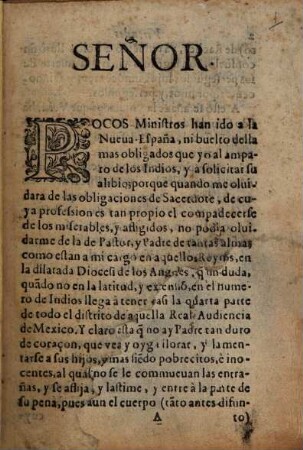 SEÑOR.
POCOS Ministros han ido a la
Nueua-España, ni buelto della
mas obligados que yo al ampa-
ro de los Indios, y a solicitar su
aliuio; porque quando me olui-
dara de las obligaciones de Sacerdote, de cu-
ya profession es tan propio el compadecerse
de los miserables, y afligidos, no podia olui-
darme de la de Pastor, y Padre de tantas almas
como estan a mi cargo en aquellos Reynos, en
la dilatada Diocesi de los Angeles, q̃ sin duda,
quãdo no en la latitud, y extensiõ, en el nu-
mero de Indios llega à tener casi la quarta parte
de todo el distrito de aquella Real Audiencia
de Mexico. Y claro està q̃ no ay Padre tan duro
de coraçon, que vea y oyga llorar, y lamen-
tarse a sus hijos, y mas siẽdo pobrecitos, è ino-
centes, al qual no se le commueuan las entra-
ñas, y se aflija, y lastime, y entre à la parte de
su pena, pues aun el cuerpo (tãto antes difun-
A
to)